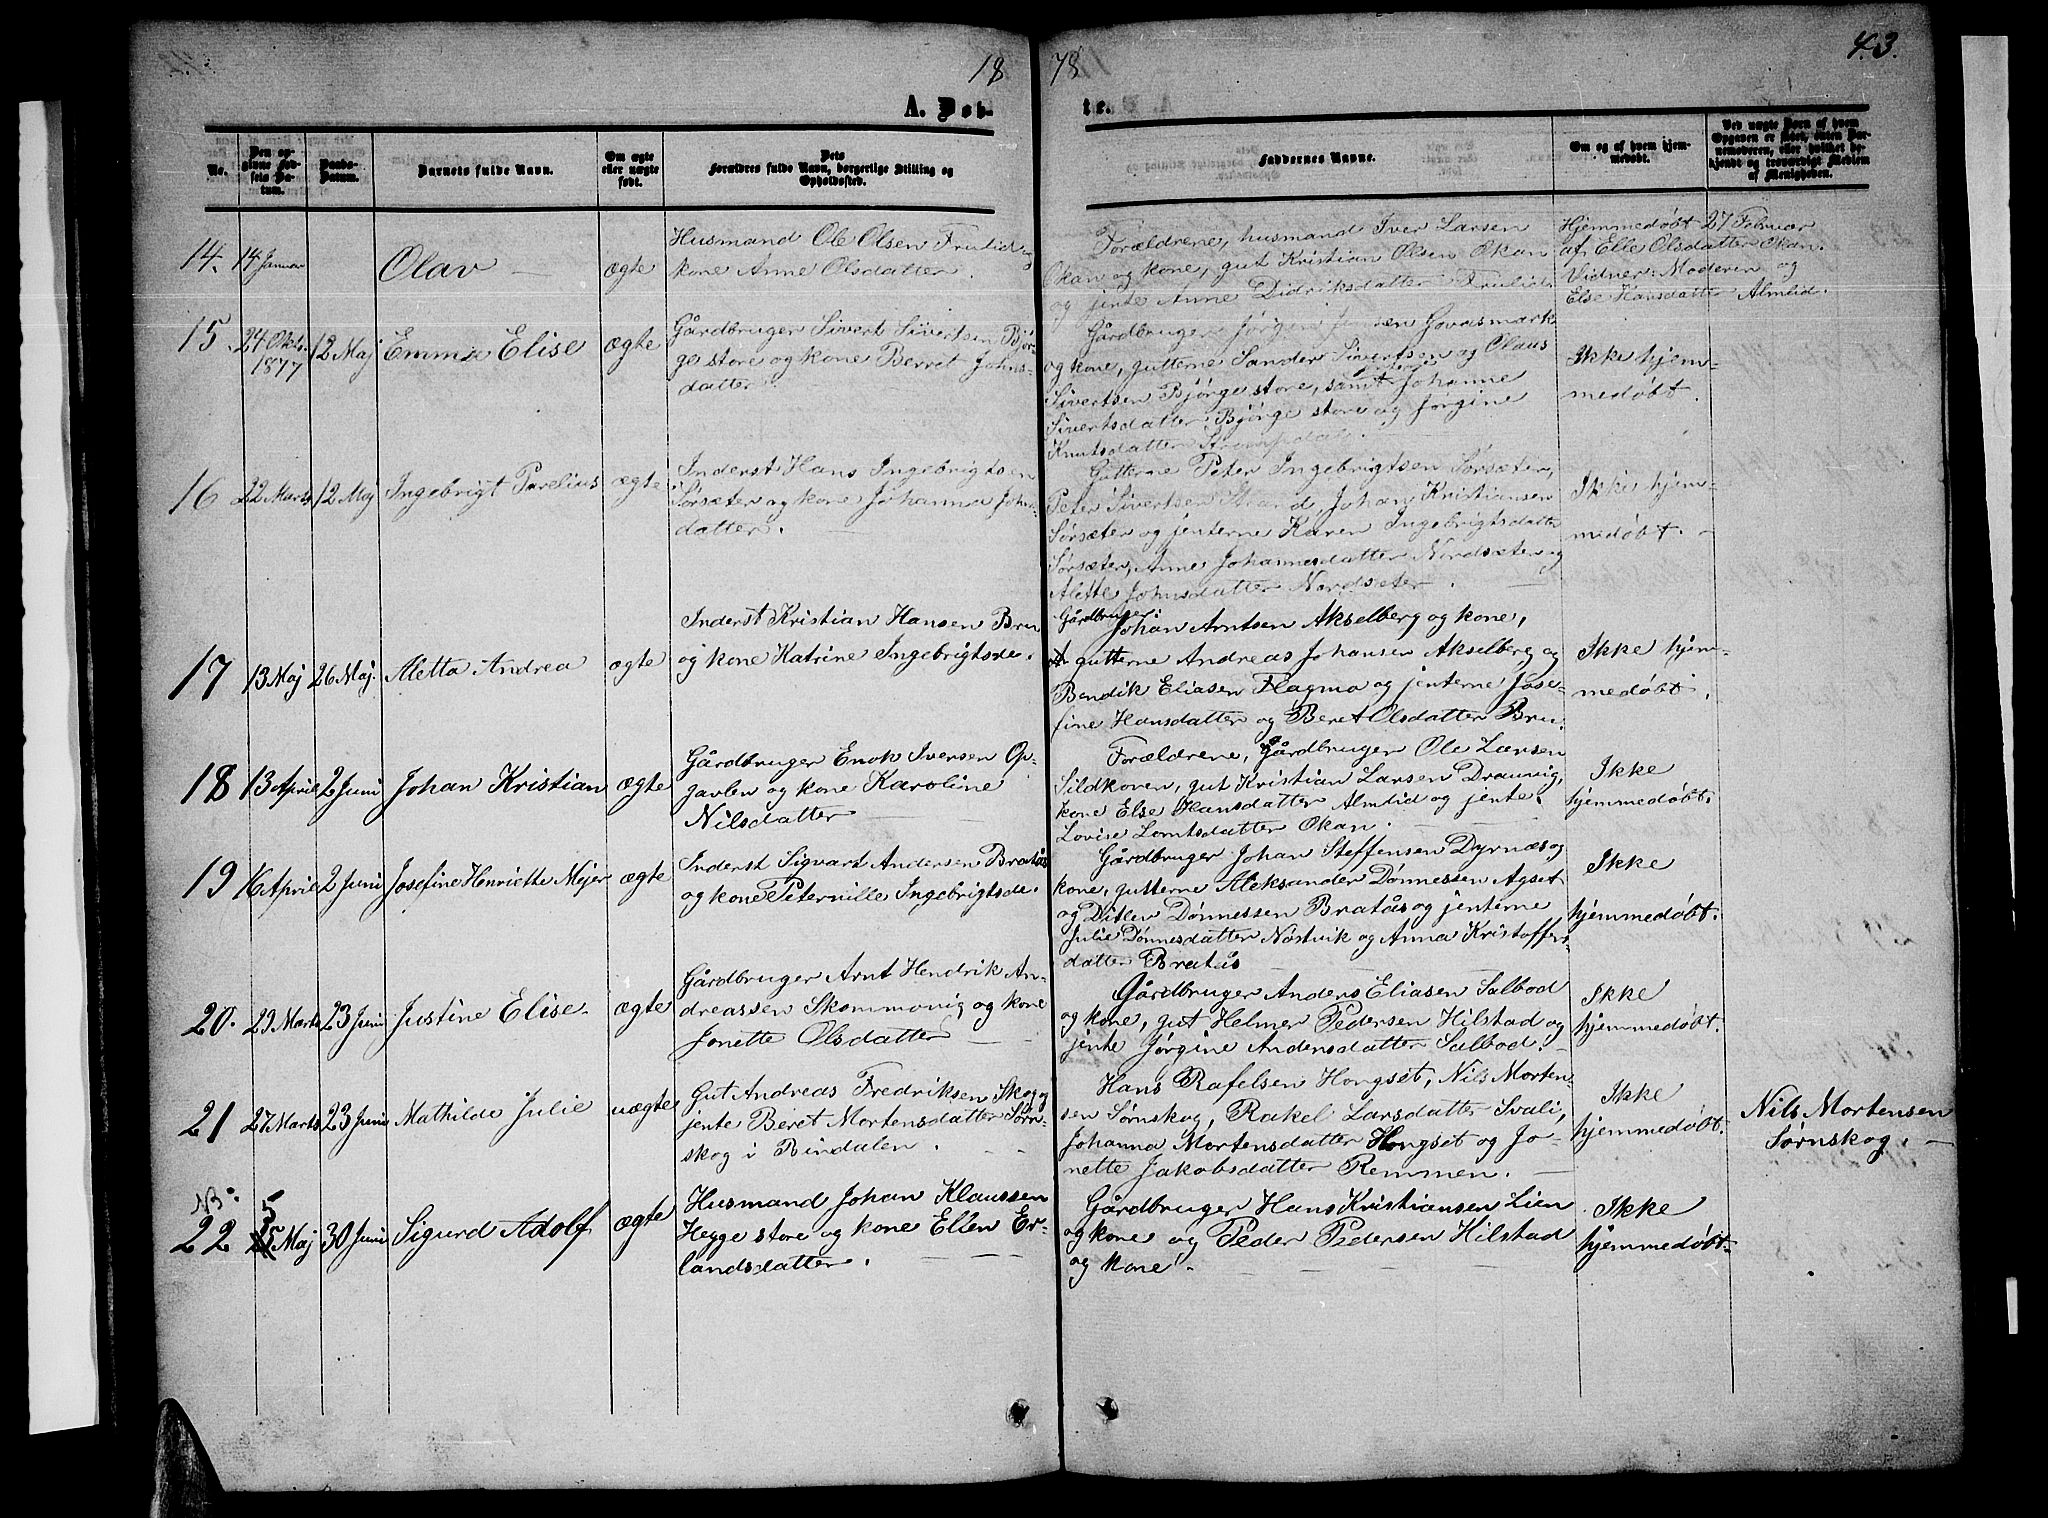 1878
43.
A. Døbte.
No.
Den opgivne Fødsels Datum.
Daabs-Datum.
Barnets fulde Navn.
Om ægte eller uægte født.
Dets Forældres fulde Navn, borgerlige Stilling og Opholdssted.
Faddernes Navne.
Om og af hvem hjemmedøbt.
Ved uægte Børn af hvem Opgaven er skeet, enten Barnemoderen, eller hvilket bekjendt og troværdigt Medlem af Menigheden.
14. 14 Januar Olav ægte
Husmand Ole Olsen Frulid og
kone Anne Olsdatter.
Forældrene, husmand Iver Larsen
Okan og kone, gut Kristian Olsen Okan
og jente Anne Didriksdatter Frulid.
Hjemmedøbt 27 Februar
af Elle Olsdatter Okan.
Vidner: Moderen og
Else Hansdatter Almlid.
15. 24 Okt. 1877 12 Maj Emma Elise ægte
Gårdbruger Sivert Sivertsen Bjør-
ge store og kone Berret Johns-
datter.
Gårdbruger Jørgen Jensen
og kone, gutterne Sander Sivertsen og Claus
Sivertsen Bjørge store, samt Johanne
Sivertsdatter Bjørge store og Jørgine
Knutsdatter
Ikke hjem-
medøbt.
16 22 Marts 12 Maj Ingebrigt Parelius ægte
Inderst Hans Ingebrigtsen
Sørsæter og kone Johanna Johns-
datter.
Gutterne Peter Ingebrigtsen Sørsæter,
Peter Sivertsen Strand, Johan Kristiansen
Sørsæter og jenterne Karen Ingebrigtsdatter
Sørsæter, Anne Johannesdatter Nordsæter og
Alette Johnsdatter Nordsæter.
Ikke hjem-
medøbt.
17 13 Maj 26 Maj. Aletta Andrea ægte
Inderst Kristian Hansen Bru
og kone Katrine Ingebrigtsdr.
Gårdbruger:
Johan Arntsen Akselberg og kone,
gutterne Andreas Johansen Akselberg og
Bendik Eliasen Flagma og jenterne Jose-
fine Hansdatter og Beret Olsdatter Bru.
Ikke hjem-
medøbt.
18 13 April 2 Juni Johan Kristian ægte
Gårdbruger Enok Iversen Op-
gavlen og kone Karoline
Nilsdatter
Forældrene, Gårdbruger Ole Larsen
Sildkoven, gut Kristian Larsen Draunig,
kone Else Hansdatter Almlid og jente
Lovise Lorntsdatter Okan.
Ikke
hjemmedøbt.
19 16 April 2 Juni Josefine Henriette Mejer ægte
Inderst Sigvart Andersen Bratås
og kone Peternille Ingebrigtsdr.
Gårdbruger Johan Steffensen Dyrnæs og
kone, gutterne Aleksander Dønnessen Agset
og Ditlev Dønnessen Bratås og jenterne
Julie Dønnesdatter Nøstvik og Anna Kristoffers-
datter Bratås
Ikke
hjemmedøbt.
20. 29 Marts 23 Juni Justine Elise. ægte
Gårdbruger Arnt Hendrik An-
dreassen Skommovig og kone
Jonette Olsdatter
Gårdbruger Anders Eliasen Salbod
og kone, gut Helmer Pedersen Hilstad og
jente Jørgine Andersdatter Salbod.
Ikke
hjemmedøbt.
21 27 Marts 23 Juni Mathilde Julie uægte
Gut Andreas Fredriksen Skog og
jente Beret Mortensdatter Sørn-
skog i Bindalen.
Hans Rafelsen Hongset, Nils Morten-
sen Sørnskog, Rakel Larsdatter Svali,
Johanna Mortensdatter Hongset og Jo-
nette Jakobsdatter Remmen.
Ikke
hjemmedøbt.
Nils Mortensen
Sørnskog.
NB.
22 5 Maj 30 Juni Sigurd Adolf ægte
Husmand Johan Klaussen
Hegge store og kone Ellen Er-
landsdatter.
Gårdbruger Hans Kristiansen Lien
og kone og Peder Pedersen Hilstad
og kone.
Ikke
hjemmedøbt.